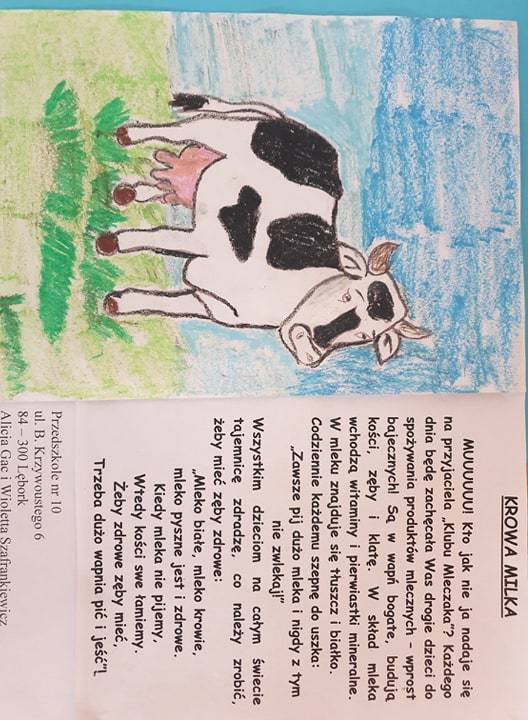 KROWA MILKA
MUUUUUU! Kto jak nie ja nadaje się
na przyjaciela „Klubu Mleczaka”? Każdego
dnia będę zachęcała Was drogie dzieci do
spożywania produktów mlecznych – wprost
bajecznych! Są w wapń bogate, budują
kości, zęby i klatę. W skład mleka
wchodzą witaminy i pierwiastki mineralne.
W mleku znajduje się tłuszcz i białko.
Codziennie każdemu szepnę do uszka:
„Zawsze pij dużo mleka i nigdy z tym
nie zwlekaj!”
Wszystkim dzieciom na całym świecie
tajemnicę zdradzę, co należy zrobić,
żeby mieć zęby zdrowe:
„Mleko białe, mleko krowie,
mleko pyszne jest i zdrowe.
Kiedy mleka nie pijemy,
Wtedy kości swe łamiemy.
Żeby zdrowe zęby mieć,
Trzeba dużo wapnia pić i jeść”!
Przedszkole nr 10
ul. B. Krzywoustego 6
84 – 300 Lębork
Alicja Gac i Wioletta Szafrankiewicz